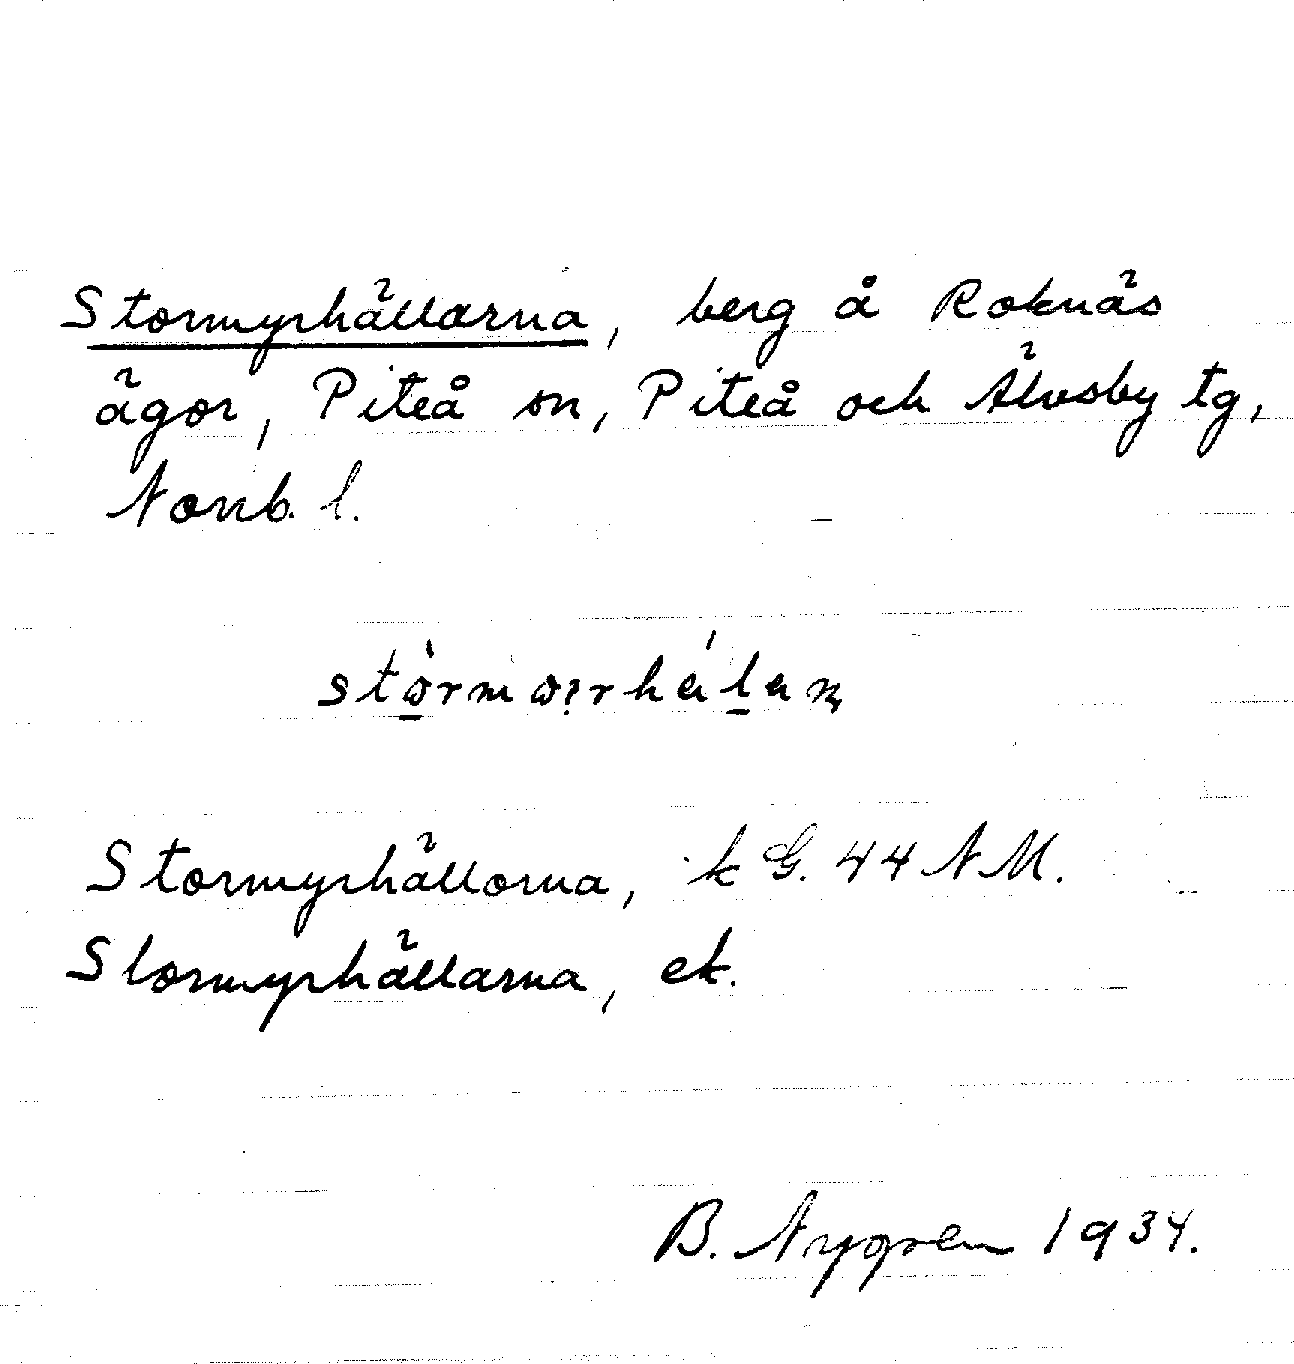 Stormyrhällarna, berg å Roknäs
ägor, Piteå sn, Piteå och Älvsby tg,
Norrb. l.
Stormyrhällorna, k G. 44 N M.
Stormyrhällarna, ek.
B. Nygren 1934.